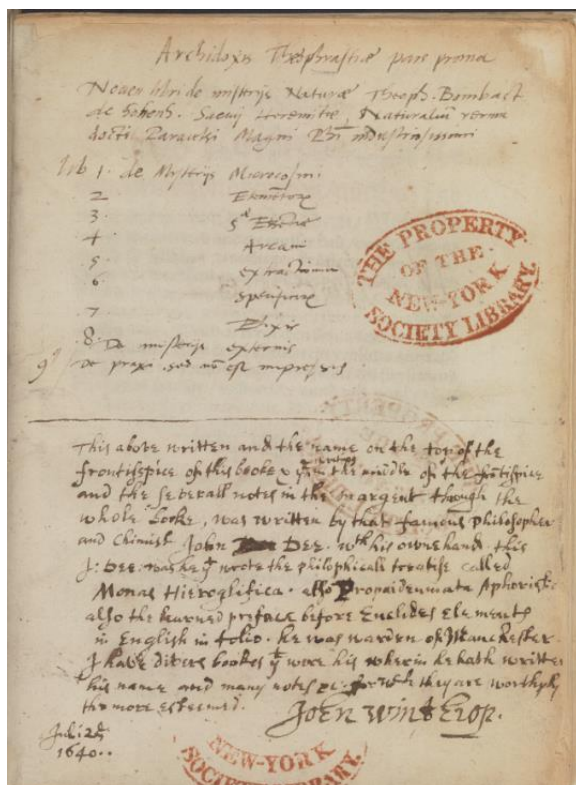 Archidoxis Theophrastiæ pars prima
Novem libri de misterijs Naturæ Theoph. Bombast
de Hohenh. Suevij Heremitæ, Naturaliū rerum
docti Paracelsi Magni Phi industriosissimi
Lib 1. de Mysterijs Microcosmi
2 Elementorū
3 5æ Essentiæ
4 Arcani
5 extractionum
6 specificorū
7 Elixir
8. De misterijs externis
9 De praxi sed nō est impressus
THE PROPERTY
OF THE
NEW-YORK
SOCIETY LIBRARY.
This above written and the name on the top of the
frontispice of this booke & in the middle of the frōtispice
and the severall notes in the margent through the
whole booke, was written by that famous philosopher
and Chimist John Dee. wth his owne hand. this
J: Dee. was he yt wrote the philosophicall treatise called
Monas Hieroglifica. also Propaideumata Aphoristica
also the learned preface before Euclides elements
in English in folio. he was warden of Manchester
I have divers bookes yt were his wherin he hath written
his name and many notes for wch they are worthyly
the more esteemed.
John Winthrop.
Juli: 25
1640..
NEW-YORK
SOCIETY LIBRARY.